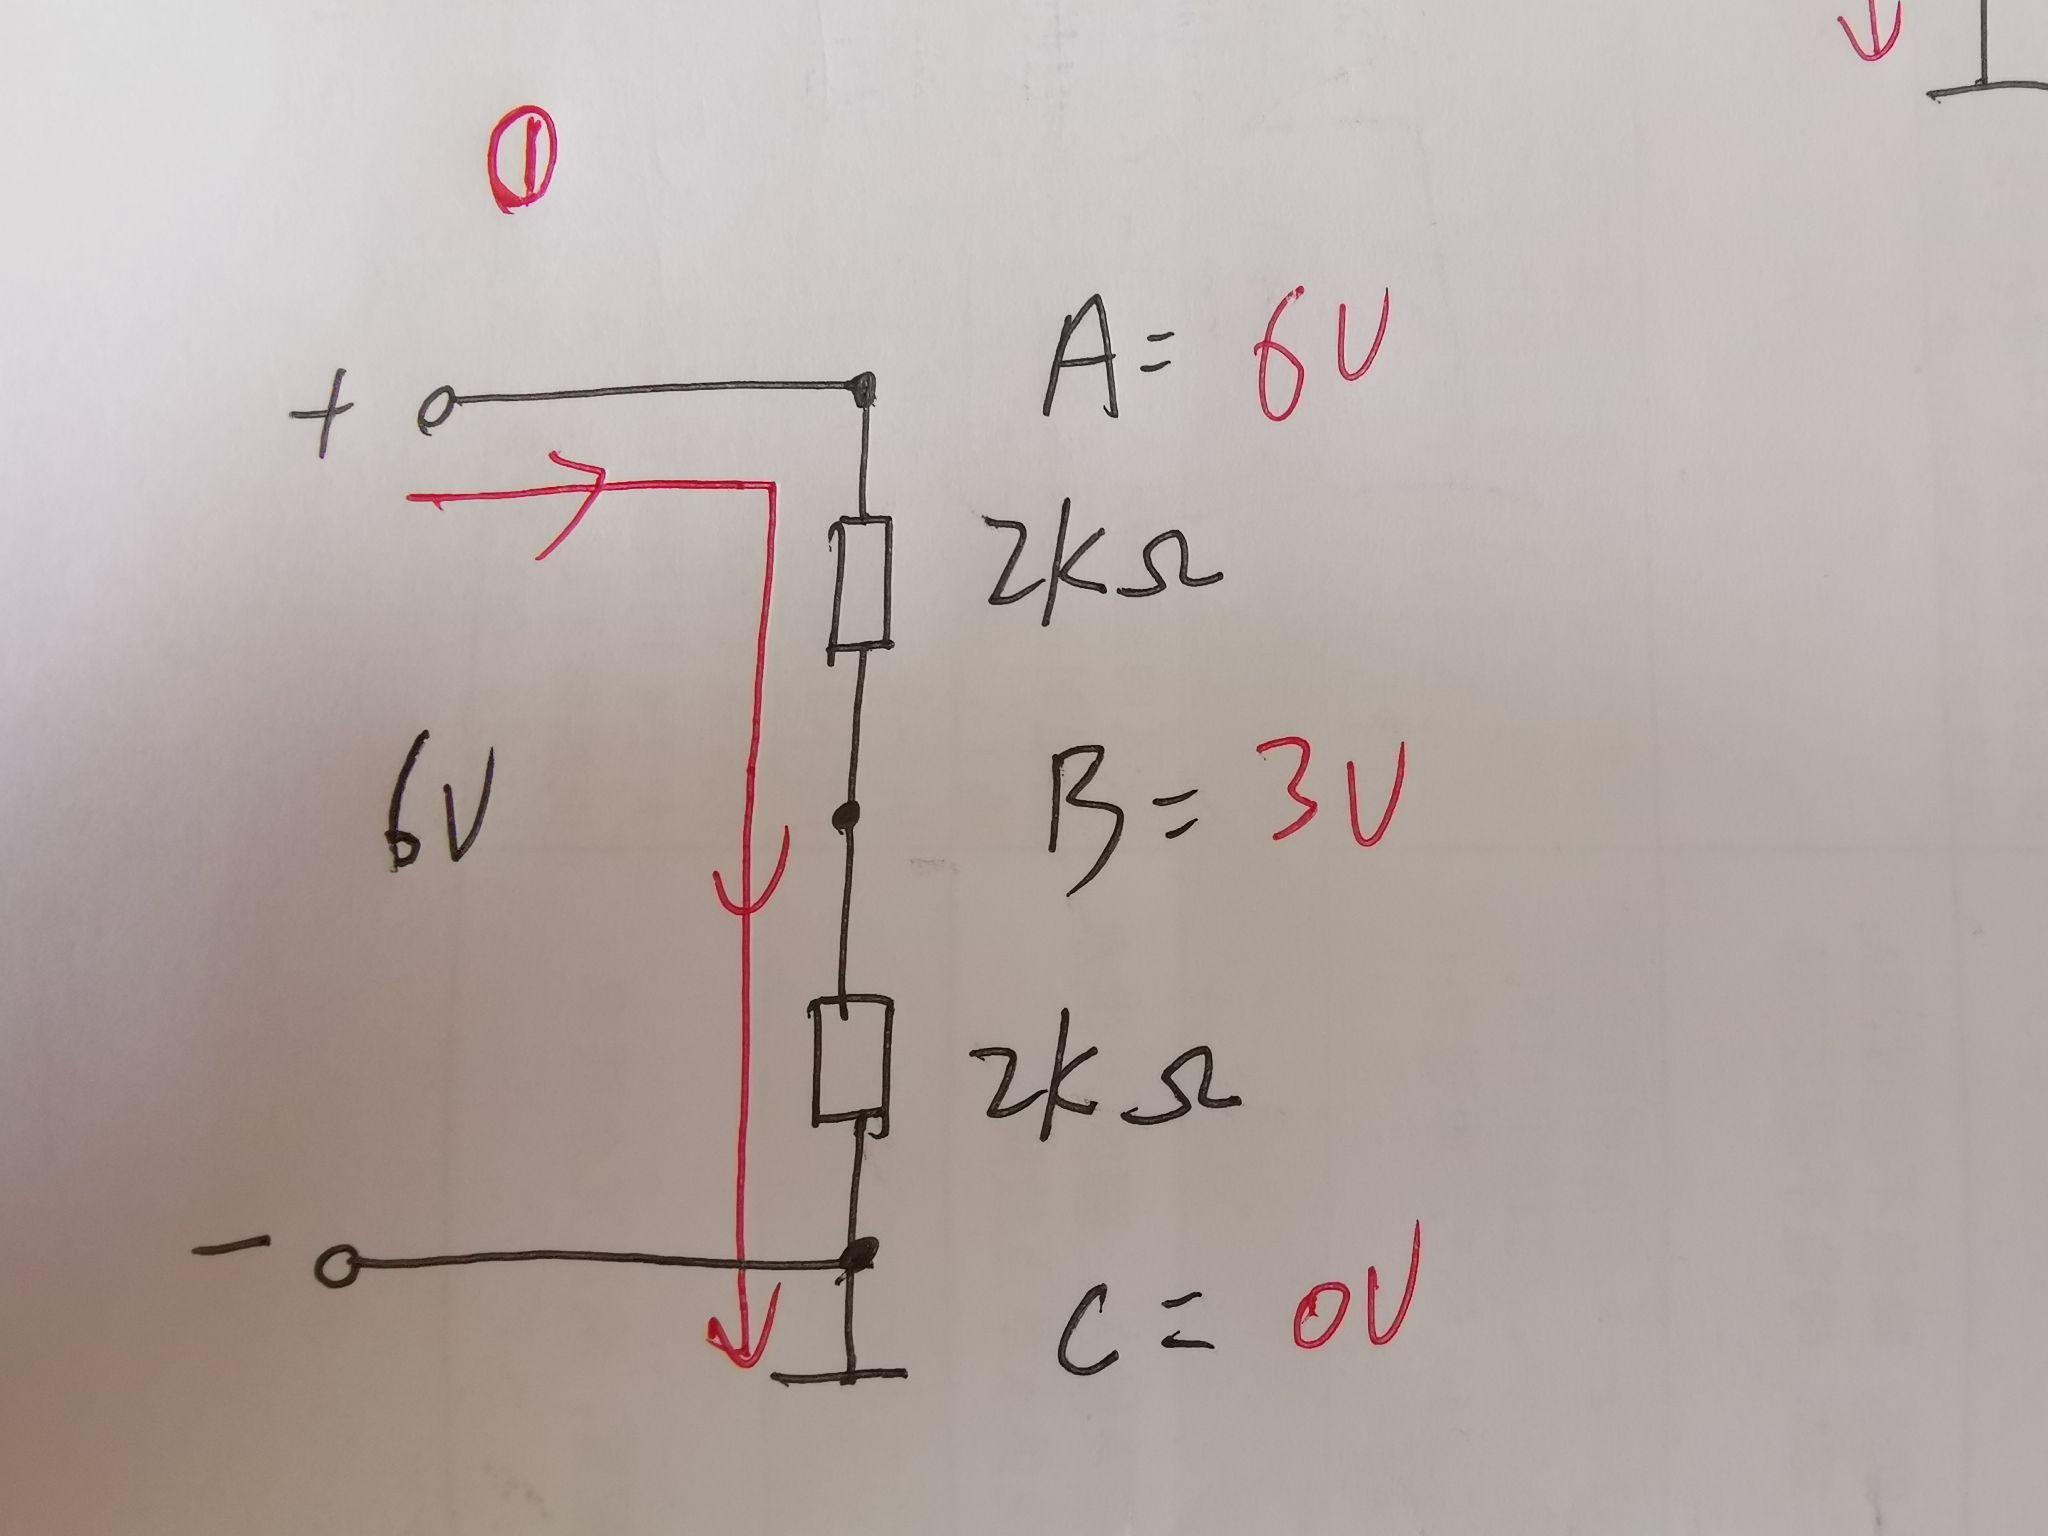 ①
+
A = 6V
2kΩ
6V
B = 3V
2kΩ
−
C = 0V